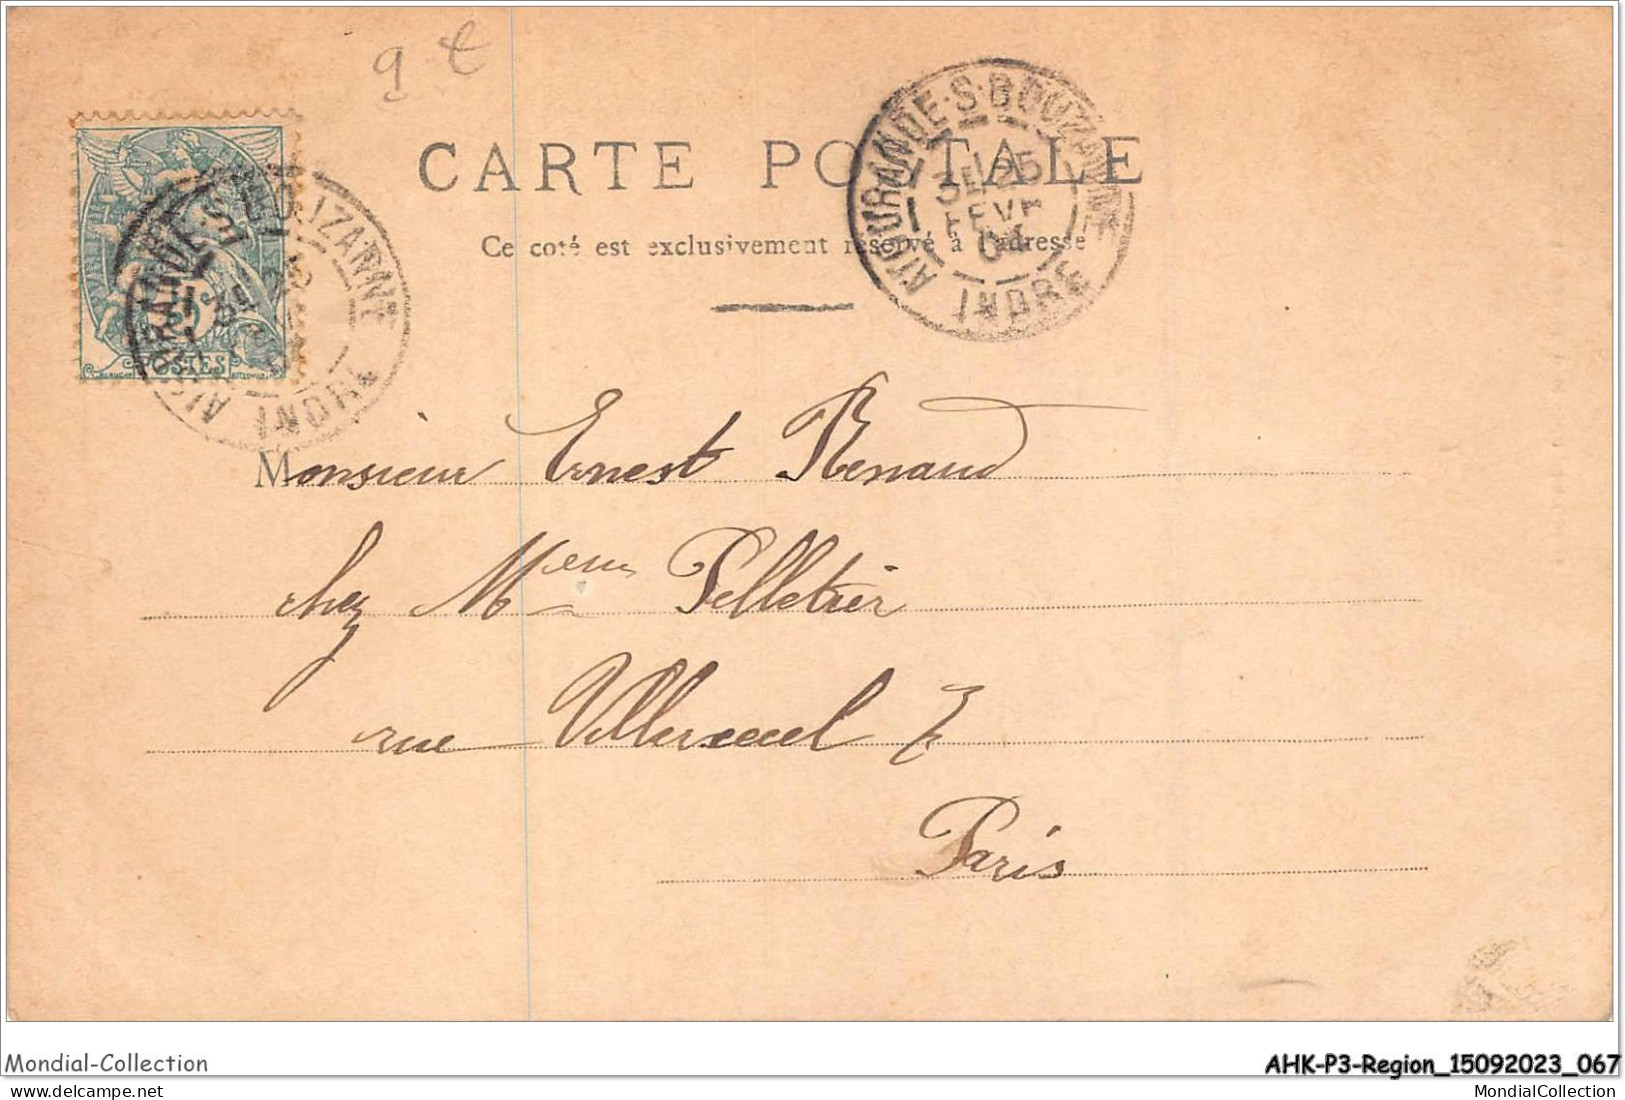 9 €
CARTE POSTALE
Ce coté est exclusivement réservé à l'adresse
AIGURANDE·S·BOUZANNE
3E/25
FEVR
04
INDRE
5
POSTES
AIGURANDE·S·BOUZANNE
INDRE
Monsieur Ernest Renaud
chez Mr Pelletier
rue Villersexel 7
Paris
Mondial-Collection
AHK-P3-Region_15092023_067
MondialCollection